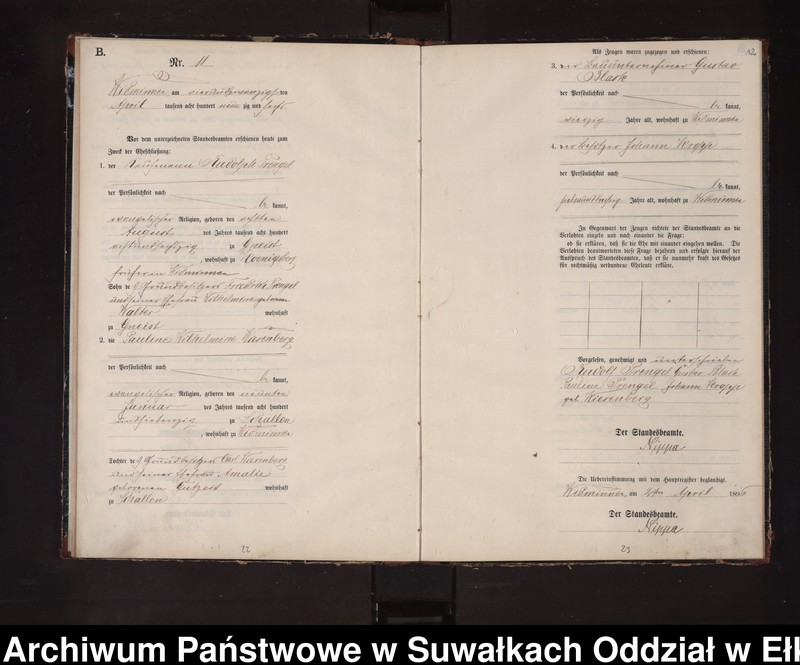 B.
Nr. 11
Widminnen am vierundzwanzigsten
April tausend acht hundert neun zig und sechs
Vor dem unterzeichneten Standesbeamten erschienen heute zum
Zweck der Eheschließung:
1. der Kaufmann Rudolph Prengel
der Persönlichkeit nach
be kannt,
evangelischer Religion, geboren den achten
August des Jahres tausend acht hundert
achtundsechszig zu Gneist
, wohnhaft zu Koenigsberg
früher in Widminnen
Sohn des Grundbesitzers Friedrich Prengel
und seiner Ehefrau Wilhelmine geborene
Walter wohnhaft
zu Gneist
2. die Pauline Wilhelmine
der Persönlichkeit nach
be kannt,
evangelischer Religion, geboren den neunten
Januar des Jahres tausend acht hundert
undsiebenzig zu Schallen
, wohnhaft zu Widminnen
Tochter des Grundbesitzers Carl
und seiner Ehefrau Amalie
geborenen wohnhaft
zu Schallen
22
12
Als Zeugen waren zugezogen und erschienen:
3. der Bauunternehmer Gustav
Blask
der Persönlichkeit nach
be kannt,
vierzig Jahre alt, wohnhaft zu Widminnen
4. der Besitzer Johann
der Persönlichkeit nach
be kannt,
Jahre alt, wohnhaft zu Widminnen
In Gegenwart der Zeugen richtete der Standesbeamte an die
Verlobten einzeln und nach einander die Frage:
ob sie erklären, daß sie die Ehe mit einander eingehen wollen. Die
Verlobten beantworteten diese Frage bejahend und erfolgte hierauf der
Ausspruch des Standesbeamten, daß er sie nunmehr kraft des Gesetzes
für rechtmäßig verbundene Eheleute erkläre.
Vorgelesen, genehmigt und unterschrieben
Rudolf Prengel Gustav Blask
Pauline Prengel Johann
geb.
Der Standesbeamte.
Nippa
Die Uebereinstimmung mit dem Hauptregister beglaubigt.
Widminnen am 24ten April 1896
Der Standesbeamte.
Nippa
23
Archiwum Państwowe w Suwałkach Oddział w Ełk